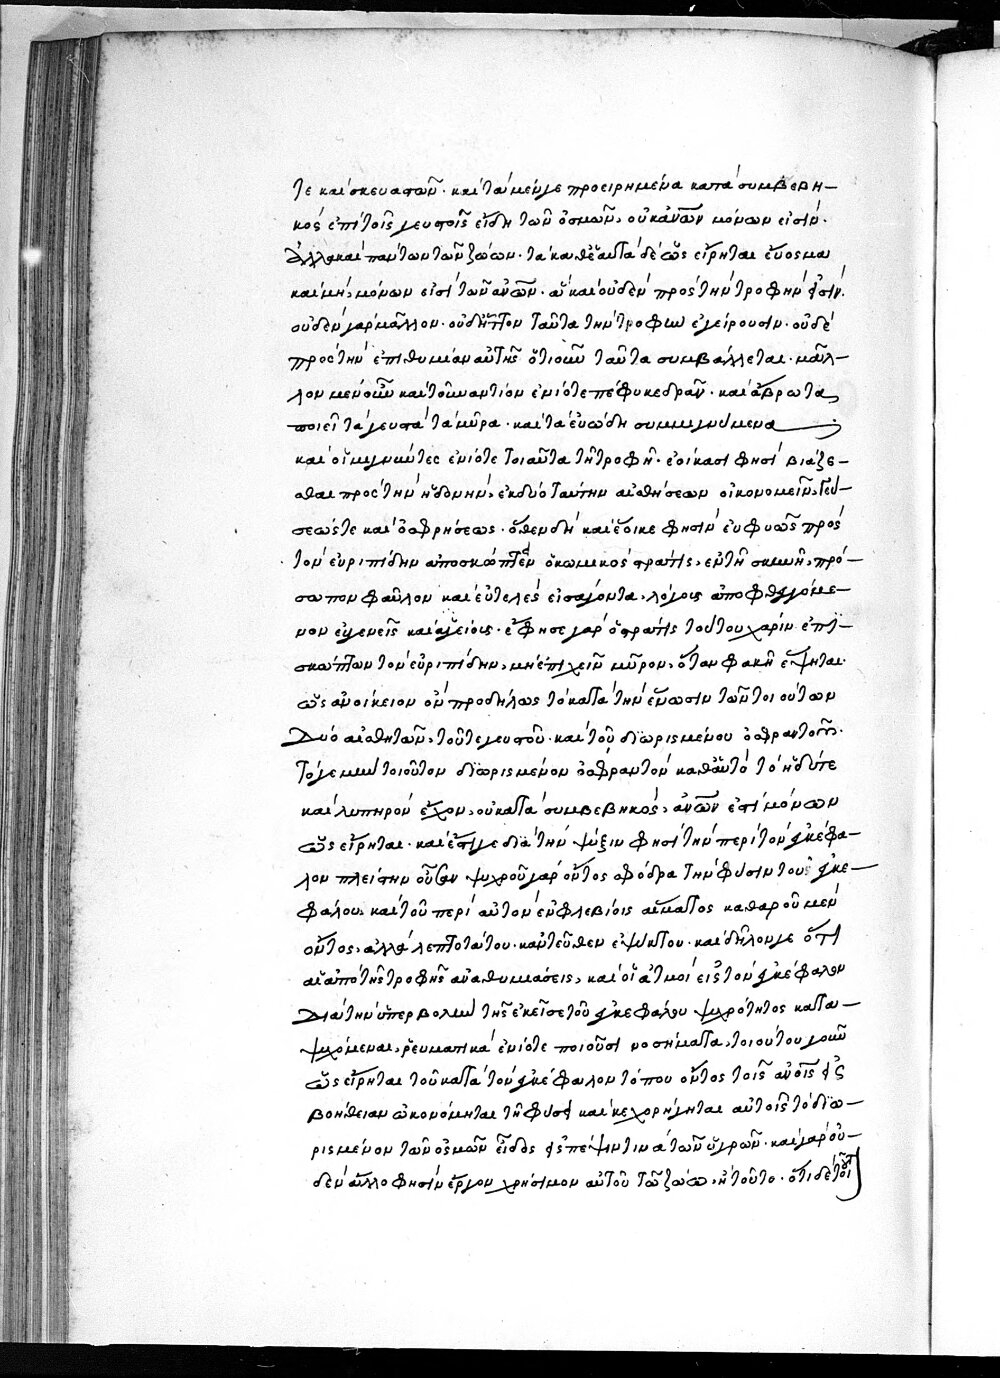 τε καὶ σκευαστῶν· καὶ τὰ μέν γε προειρημένα κατὰ συμβεβη-
κός ἐπὶ τοῖς γευστοῖς εἴδη τῶν ὀσμῶν, οὐκ ἀνῶν μόνων εἰσίν·
ἀλλὰ καὶ πάντων τῶν ζώων· τὰ καθ' ἑαυτὰ δὲ ὡς εἴρηται εὔοσμα
καὶ μή, μόνων εἰσὶ τῶν ἀνῶν· ἃ καὶ οὐδὲν πρὸς τὴν τροφήν ἐστίν·
οὐδὲν γὰρ μᾶλλον· οὐδ' ἧττον ταῦτα τὴν τροφὴν ἐγείρουσιν· οὐδὲ
πρὸς τὴν ἐπιθυμίαν αὐτῆς ὁτιοῦν ταῦτα συμβάλλεται· μᾶλ-
λον μὲν οὖν καὶ τοὐναντίον ἐνίοτε πέφυκε δρᾶν· καὶ ἄβρωτα
ποιεῖ τὰ γευστὰ τὰ μῦρα· καὶ τὰ εὐώδη συμμιγνύμενα
καὶ οἱ μιγνύντες ἐνίοτε τοιαῦτα τῇ τροφῇ· ἐοίκασι φησὶ βιάζε-
σθαι πρὸς τὴν ἡδονήν, ἐκ δύο ταύτην αἰσθήσεων οἰκονομεῖν, γεύ-
σεώς τε καὶ ὀσφρήσεως· ὅθεν δὴ καὶ ἔοικε φησὶν εὐφυῶς πρὸς
τὸν εὐριπίδην ἀποσκώπτειν ὁ κωμικὸς στράτις, ἐν τῇ σκηνῇ, πρό-
σωπον φαῦλον καὶ εὐτελὲς εἰσάγοντα, λόγοις ἀποφθεγγόμε-
νον εὐγενεῖς καὶ ἀξίοις· ἔφησε γὰρ ὁ στράτις τούτου χάριν ἐπι-
σκώπτων τὸν εὐριπίδην, μὴ ἐπιχεῖν μῦρον, ὅταν φακῆ ἕψηται·
ὡς ἀνοίκειον ὂν προδήλως τὸ κατὰ τὴν ἕνωσιν τῶν τοιούτων
δύο αἰσθητῶν, τοῦ τε γευστοῦ· καὶ τοῦ διωρισμένου ὀσφραντοῦ·
τό γε μὴν τοιοῦτον διωρισμένον ὀσφραντὸν καθ' αὑτὸ τὸ ἡδύ τε
καὶ λυπηρὸν ἔχον, οὐ κατὰ συμβεβηκός, ἀνῶν ἐστὶ μόνων
ὡς εἴρηται· καὶ ἔστι γε διὰ τὴν ψύξιν φησὶ τὴν περὶ τὸν ἐγκέφα-
λον πλείστην οὖσαν ψυχροῦ γὰρ ὄντος σφόδρα τὴν φύσιν τοῦ ἐγκε-
φάλου, καὶ τοῦ περὶ αὐτὸν ἐν φλεβίοις αἵματος καθαροῦ μὲν
ὄντος, ἀλλὰ λεπτοτάτου· κἀντεῦθεν εὐψύκτου· καὶ δῆλόν γε ὅτι
αἱ ἀπὸ τῆς τροφῆς ἀναθυμιάσεις, καὶ οἱ ἀτμοὶ εἰς τὸν ἐγκέφαλον
διὰ τὴν ὑπερβολὴν τῆς ἐκεῖσε τοῦ ἐγκεφάλου ψυχρότητος κατα-
ψυχόμεναι, ῥευματικὰ ἐνίοτε ποιοῦσι νοσήματα, τοιούτου γοῦν
ὡς εἴρηται τοῦ κατὰ τὸν ἐγκέφαλον τόπου ὄντος τοῖς ἀνοῖς εἰς
βοήθειαν ᾠκονόμηται τῇ φύσει καὶ κεχορήγηται αὐτοῖς τὸ διω-
ρισμένον τῶν ὀσμῶν εἶδος εἰς πέψιν τινὰ τῶν ὑγρῶν· καὶ γὰρ οὐ-
δὲν ἄλλο φησὶν ἔργον χρήσιμον αὐτοῦ τῷ ζώῳ, ἢ τοῦτο· ὅτι δὲ τοῦτ